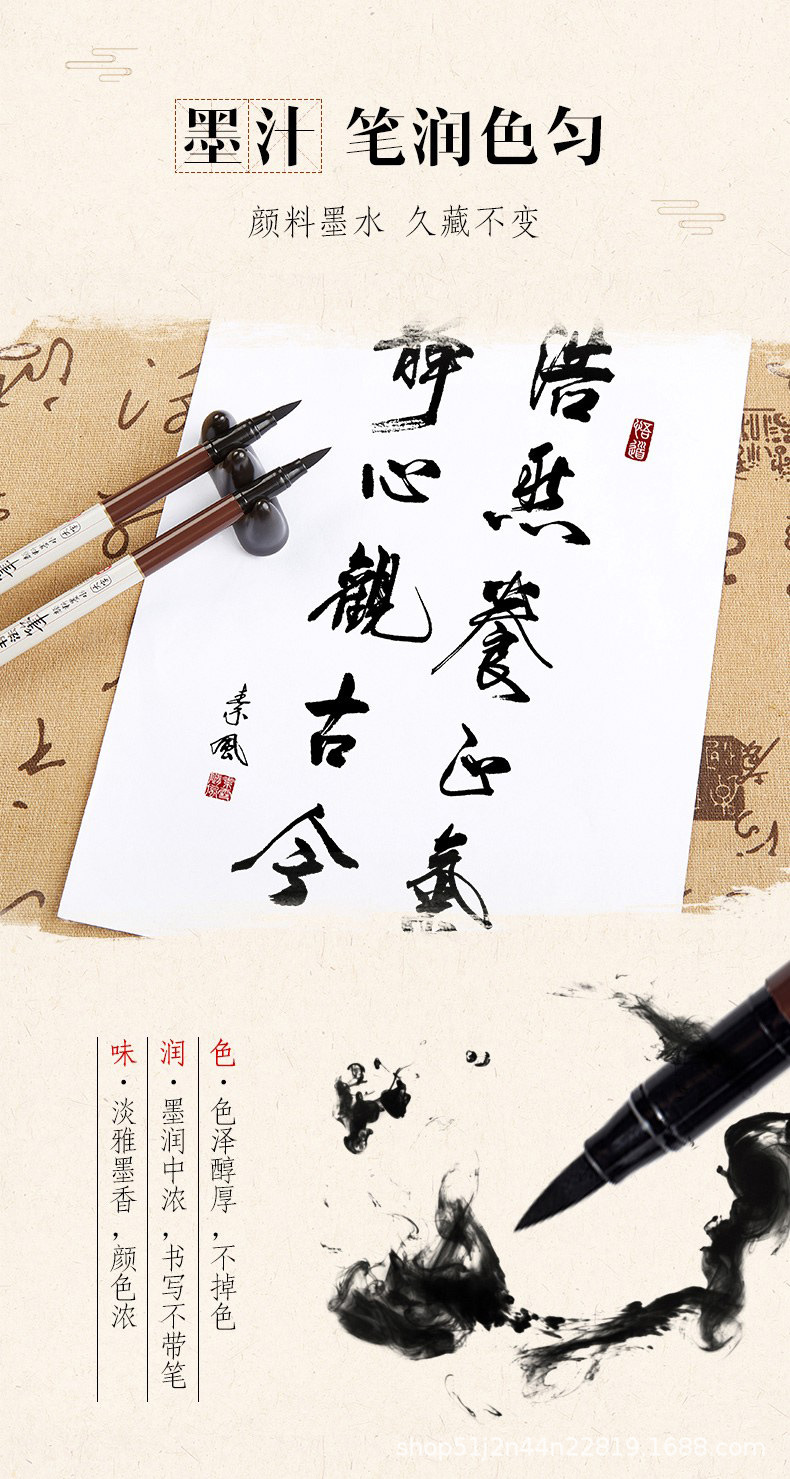 墨汁 笔润色匀
颜料墨水 久藏不变
浩然养正气
静心觀古今
悟道
素風
色·色泽醇厚,不掉色
润·墨润中浓,书写不带笔
味·淡雅墨香,颜色浓
shop51j2n44n22819.1688.com